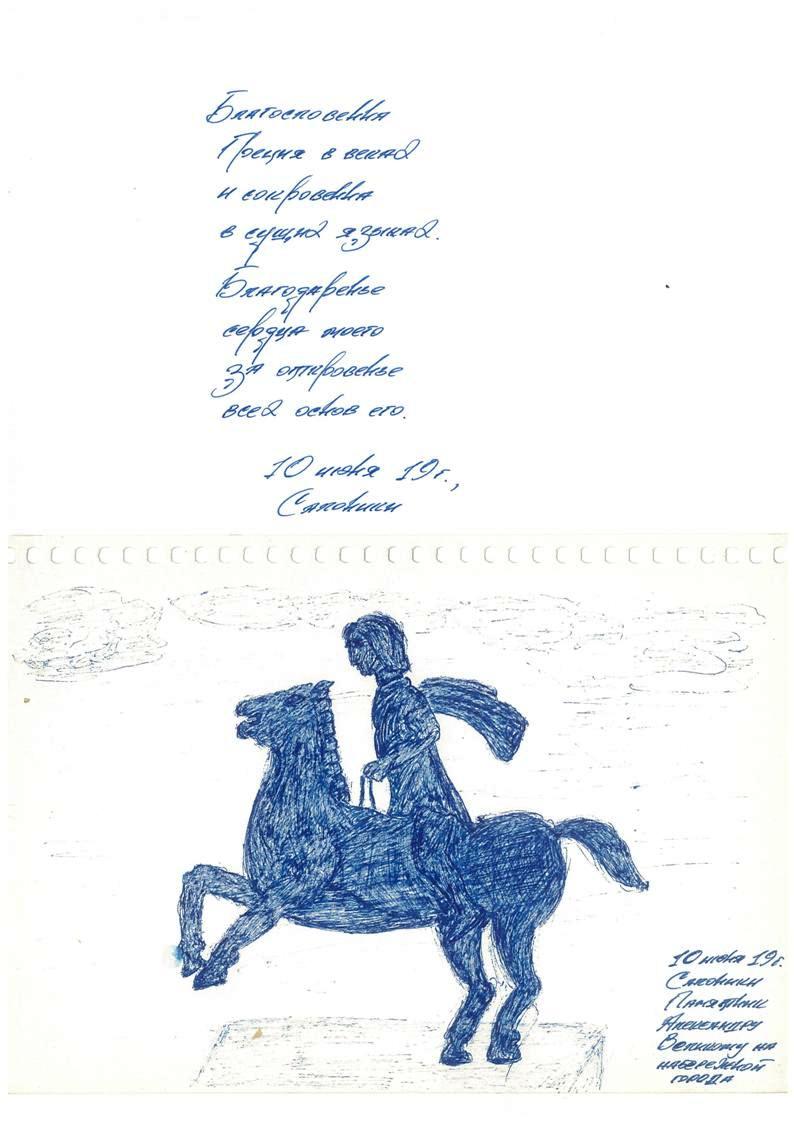 Благословенна
Греция в веках
и сокровенна
в сущих языках.
Благодаренье
сердца моего
за откровенье
всех основ его.
10 июня 19г.,
Салоники
10 июня 19г.
Салоники
Памятник
Александру
Великому на
набережной
города